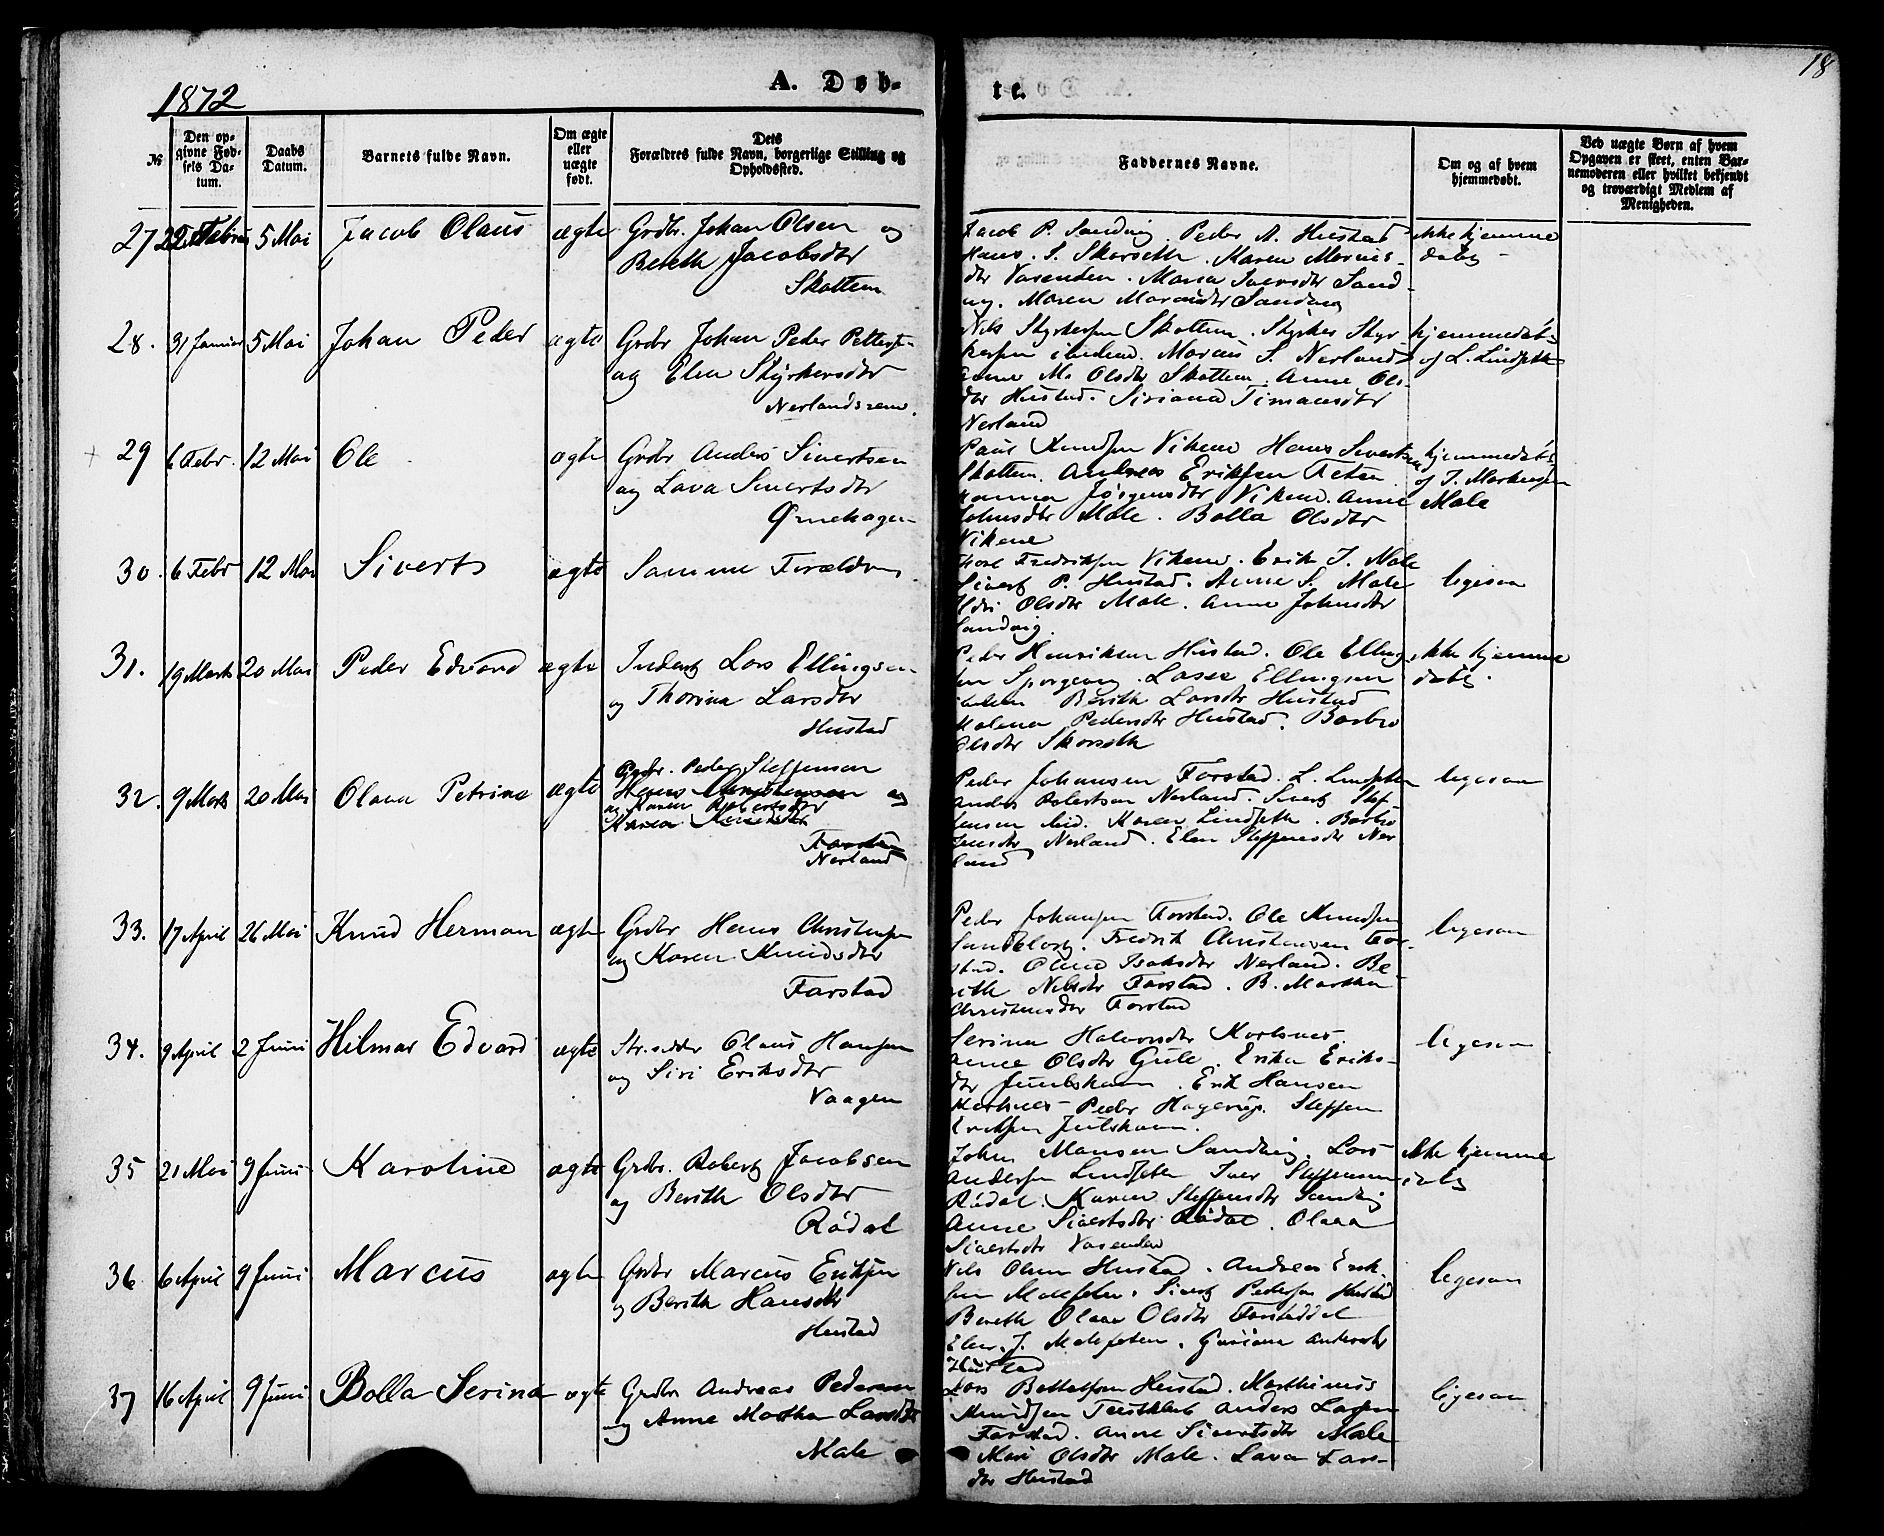 1872
A. Døb-
te.
18
№
Den op-
givne Fød-
sels Da-
tum.
Daabs
Datum.
Barnets fulde Navn.
Om ægte
eller
uægte
født.
Dets
Forældres fulde Navn, borgerlige Stilling og
Opholdssted.
Faddernes Navne.
Om og af hvem
hjemmedøbt.
Ved uægte Børn af hvem
Opgaven er skeet, enten Bar-
nemoderen eller hvilket bekjendt
og troværdigt Medlem af
Menigheden.
27 5 Mai Jacob Olaus ægte Grdbr. Johan Olsen og
Bereth Jacobsdtr
Skottem
Jacob P. Sandvig. Peder A. Hustad
Hans. S. Skarseth. Karen
dtr Vasenden. Maren Iversdtr Sand-
Sandvig
ikke hjemme
døbt
28. 31 Januar 5 Mai Johan Peder ægte Grdbr Johan Peder Petters
og Elen Styrkersdtr
Nerlandsrem.
Nils Styrkersen Skottem. Styrker Styr
kersen Marcus S. Nerland
Anne M. Olsdtr Skottem. Anne Ols-
dtr Hustad. Siriana Timansdtr
Nerland
hjemmedøbt
af L. Lindseth
29 6 Febr. 12 Mai Ole ægte Grdbr Anders Sivertsen
og Lava Sivertsdtr
Ørnehagen
Paul Knudsen Vikene Hans Sivertsen
Skottem. Andreas Eriksen Teten
Jørgensdtr Vikene. Anne
Johnsdtr Male. Bolla Olsdtr
Vikene
hjemmedøbt
af
Male
30. 6 Febr 12 Mai Sivert ægte Samme Forældre
Fredriksen Vikene. Erik J. Male
Sivert P. Hustad. Anne S. Male
Olsdtr Male. Anne Johnsdtr
Sandvig.
ligesaa
31. 19 Marts 20 Mai Peder Edvard ægte Inderst Lars Ellingsen
og Thorina Larsdtr
Hustad
Peder Henriksen Hustad. Ole Elling
sen Lasse Ellingsen
Berith Larsdtr Hustad
Malena Pedersdtr Hustad. Barbro
Olsdtr Skarseth
ikke hjemme
døbt.
32. 9 Marts 20 Mai Olava Petrine ægte Grdbr. Peder Steffensen
Hans Christensen og
og Karen Robertsdtr
Karen Knudsdtr
Farstad
Nerland
Peder Johansen Farstad. L. Lindseth
Anders Robertsen Nerland. Sivert Stef-
fensen ibid. Karen Lindseth. Barbro
Jensdtr Nerland. Elen Steffensdtr Ner
land
ligesaa
33. 17 April 26 Mai Knud Herman ægte Grdbr Hans Christensen
og Karen Knudsdtr
Farstad
Peder Johansen Farstad. Ole Knudsen
Sandblost. Fredrik Christensen Far-
stad. Oline Isaksdtr Nerland. Be-
rith Nilsdtr Farstad. B. Martha
Christensdtr Farstad
ligesaa
34. 9 April 2 Juni Hilmar Edvard ægte Str.sidder Olaus Hansen
og Siri Eriksdtr
Vaagen
Serina Halvorsdtr Kortsnes.
Anne Olsdtr Gule. Erika Eriks-
dtr Julshavn. Erik Hansen
Kortsnes Peder Hagerup. Steffen
Eriksen Julshavn.
ligesaa
35 21 Mai 9 Juni Karoline ægte Grdbr. Robert Jacobsen
og Berith Olsdtr
Rødal
Johns Monsen Sandvig. Lars
Andersen Lindseth Iver Steffensen
Rødal. Karen Steffensdtr Sandvig
Anne Sivertsdtr Rødal. Olava
Sivertsdtr Vasenden
ikke hjemme
døbt
36 6 April 9 Juni Marcus ægte Grdbr Marcus Eriksen
og Berith Hansdtr
Hustad
Nils Olsen Hustad. Andreas Erik-
sen Malefeten. Sivert Pedersen Hustad
Bereth Olava Olsdtr
Elen. J. Malefeten. Andersdtr
Hustad
ligesaa
37 16 April 9 Juni Bolla Serina ægte Grdbr Andreas Pedersen
og Anne Martha Larsdtr
Male
Lars Hustad. Marthinus
Knudsen Anders Larsen
Farstad. Anne Sivertsdtr Male
Mari Olsdtr Male. Lava Lars-
dtr Hustad
ligesaa